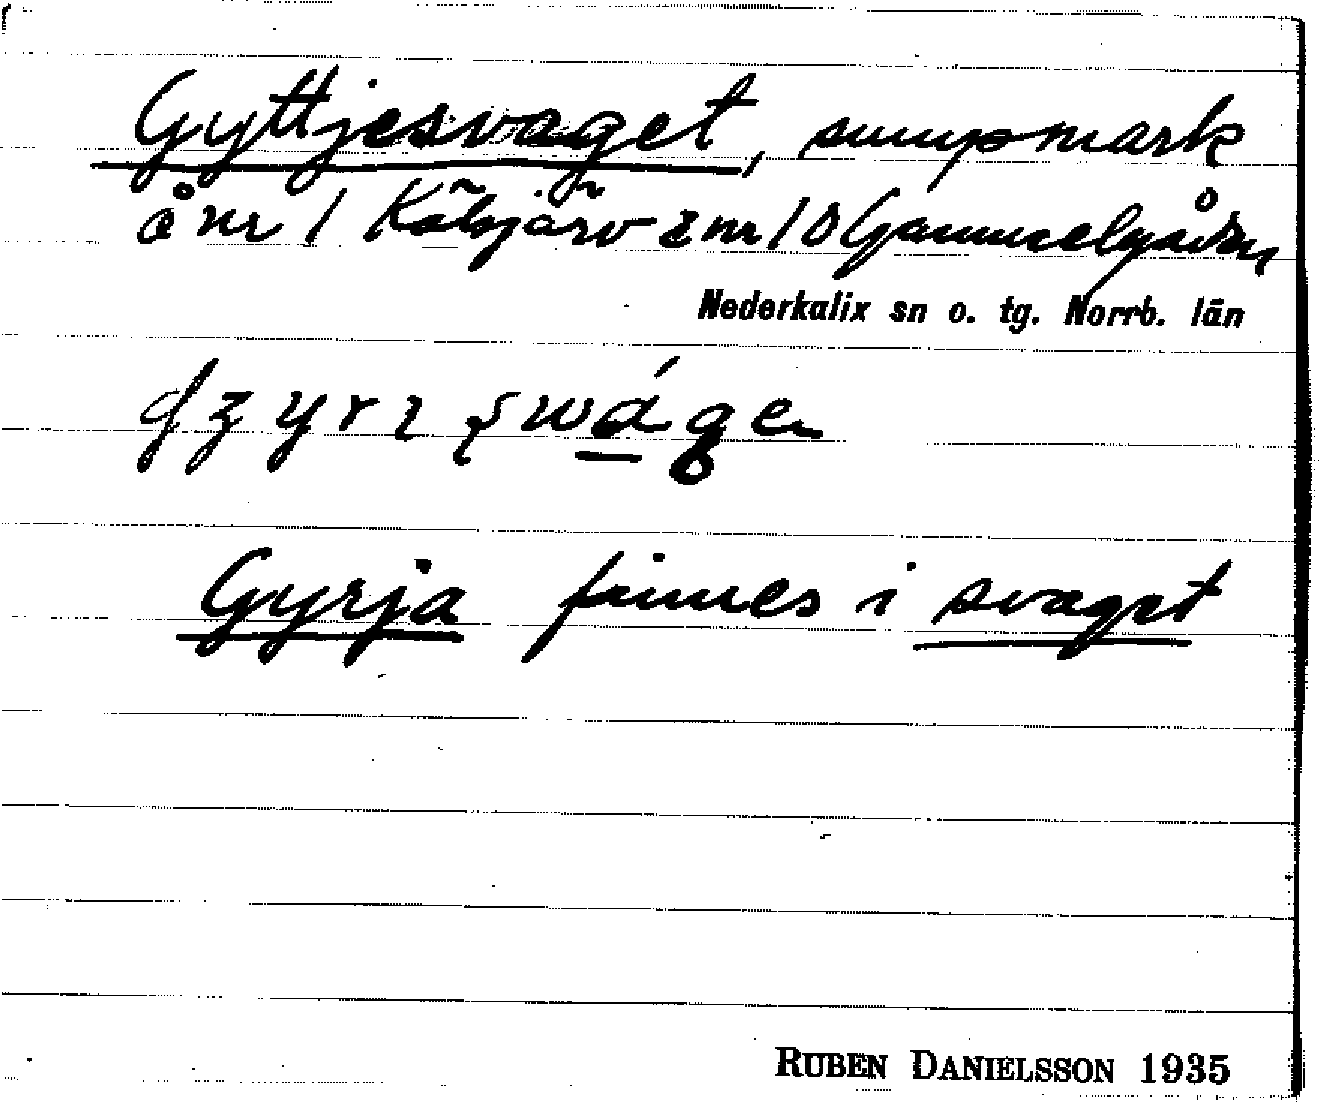 Gyttjesvaget, sumpmark
å nr 1 Kälsjärv & nr 10 Gammelgården
Nederkalix sn o. tg. Norrb. län
Gyrja finnes i svaget
RUBEN DANIELSSON 1935